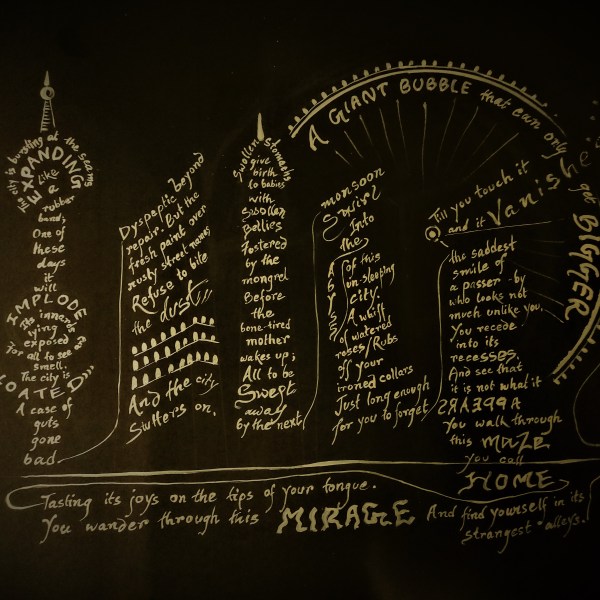 The city is bursting at the seams
EXPANDING
like
a
rubber
band;
One of
these
days
it
will
IMPLODE
its inner
lying
exposed
for all to see
smell.
The city is
A case of
guts
gone
bad
Dyspeptic beyond
repair. But the
fresh paint over
rusty street names
Refuse to bite
the dust;
And the city
Stutters on.
Swollen Stomachs
give
birth
to babies
with
Swollen
Bellies
Fostered
by the
mongrel
Before
the
bone-tired
mother
wakes up;
All to be
Swept
away
by the next
monsoon
Swirl
Into
the
ABYSS
of this
un-sleeping
city.
A whiff
of watered
roses/Rubs
off your
ironed collars
Just long enough
for you to forget
the saddest
smile of
a passer-by
who looks not
much unlike you.
You recede
into its
recesses.
And see that
it is not what it
APPEARS
You walk through
this MAZE
you call
HOME
A GIANT BUBBLE that can only
get BIGGER
Till you touch it
and it Vanishe
Tasting its joys on the tips of your tongue.
You wander through this MIRAGE And find yourself in its
strangest alleys.